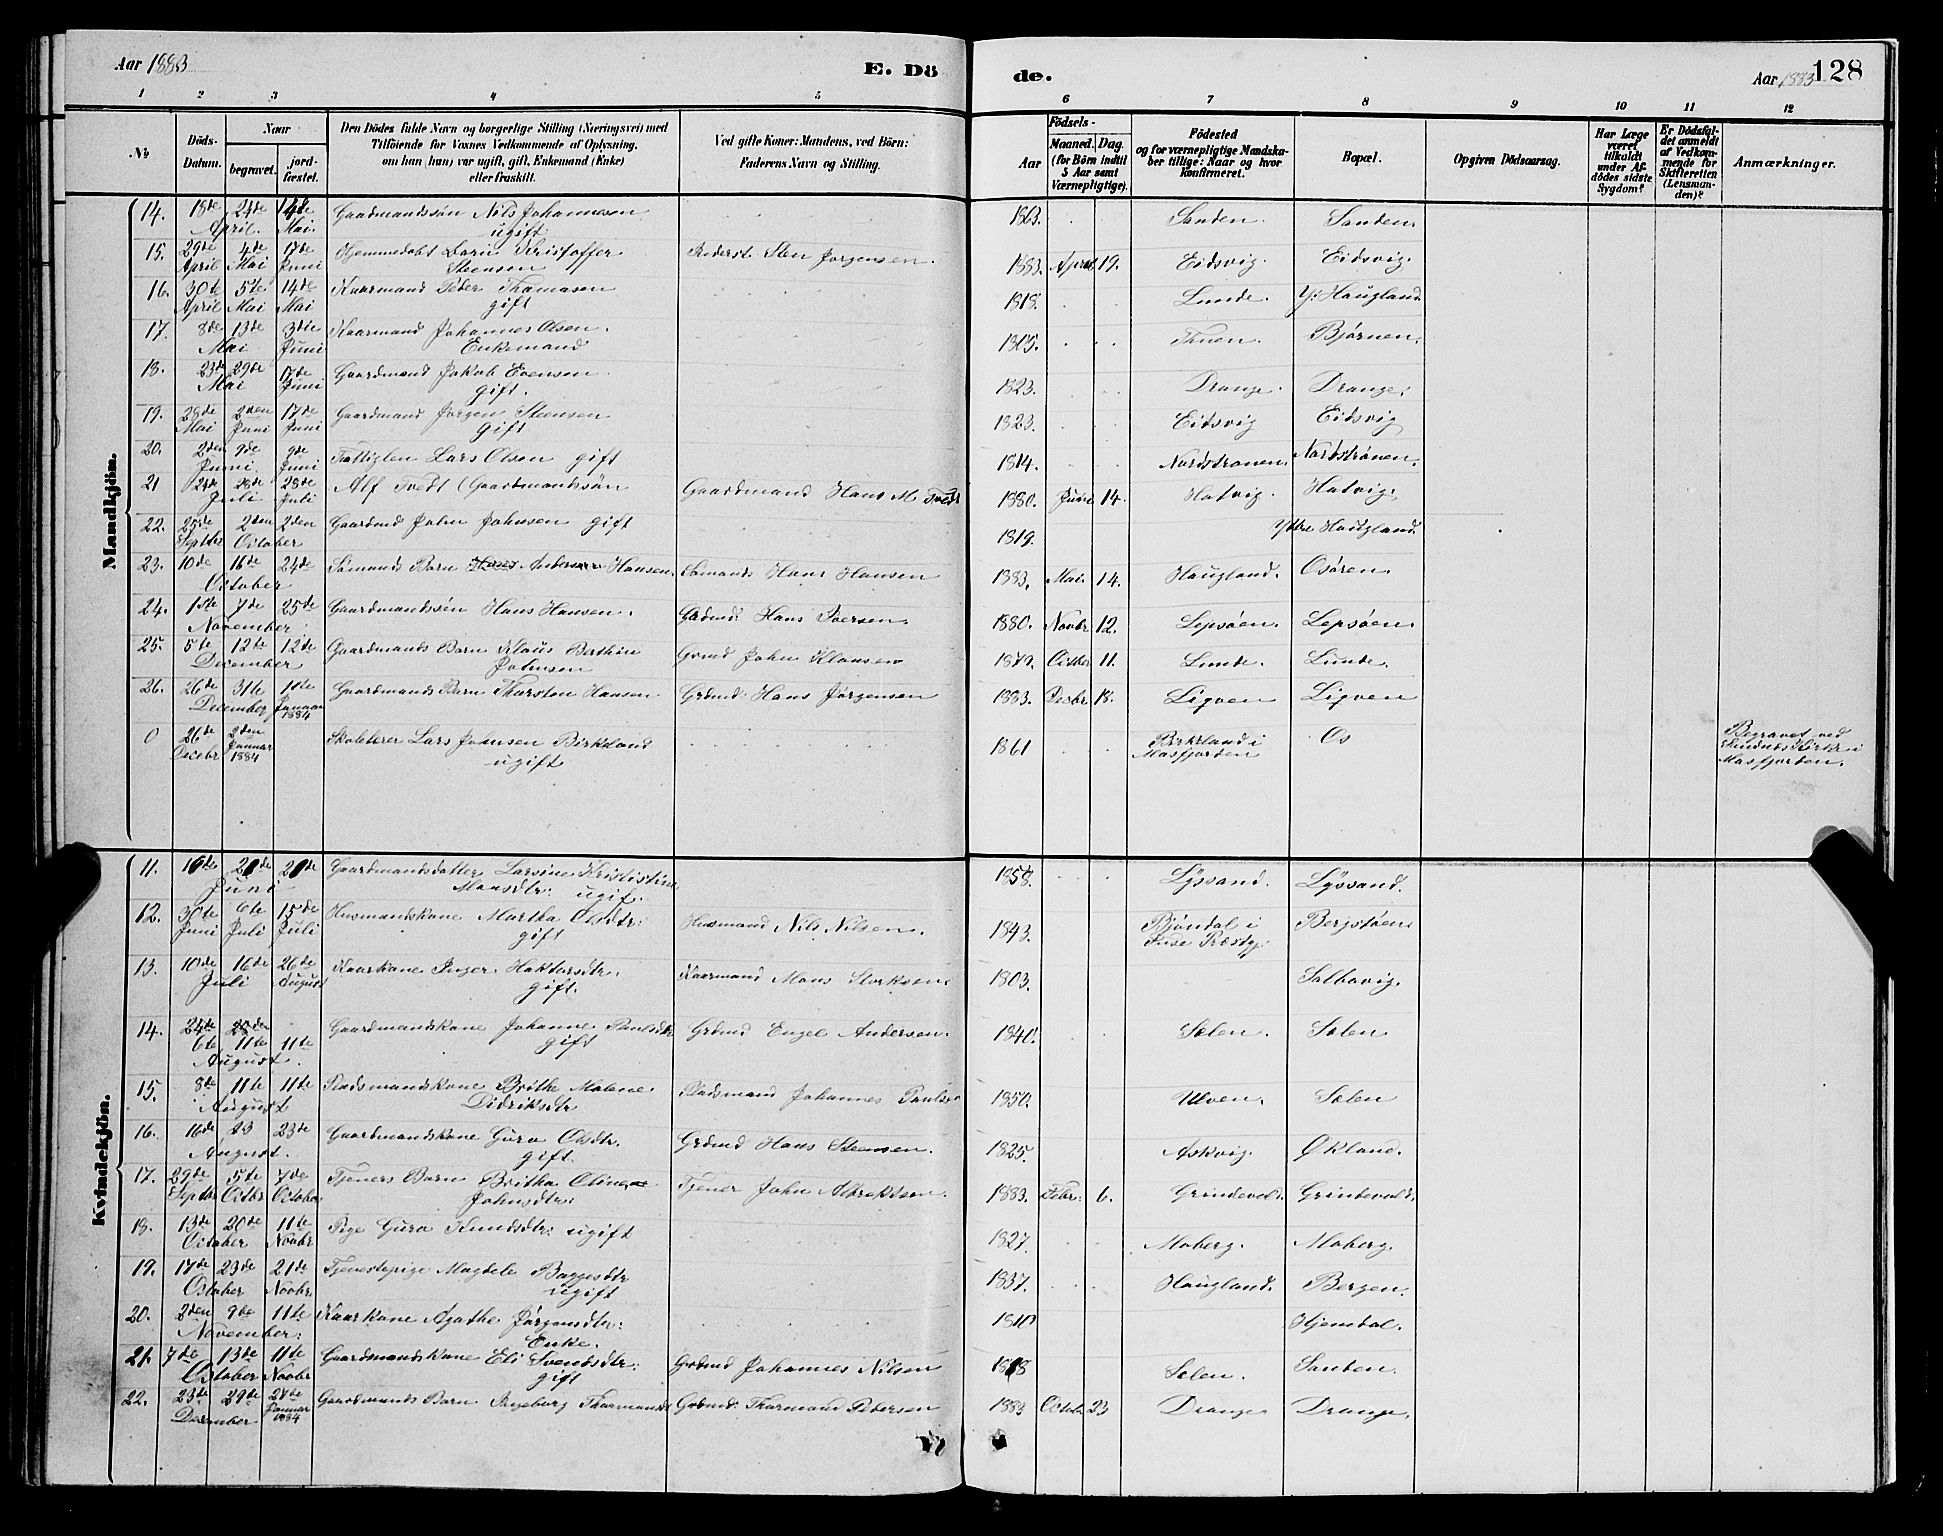 Aar 1883 E. Dö de. Aar 1883 128
1 2 3 4 5 6 7 8 9 10 11 12
No Döds-Datum. Naar begravet. jord-fæstet. Den Dödes fulde Navn og borgerlige Stilling (Næringsvei) med Tilföiende for Voxnes Vedkommende af Oplysning, om han (hun) var ugift, gift, Enkemand (Enke) eller fraskilt. Ved gifte Koner: Mandens, ved Börn: Faderens Navn og Stilling. Födsels- Aar Maaned. Dag. (for Börn indtil 5 Aar samt Værnepligtige). Födested og for værnepligtige Mandskaber tillige: Naar og hvor Konfirmeret. Bopæl. Opgiven Dödsaarsag. Har Læge været tilkaldt under Afdödes sidste Sygdom? Er Dödsfaldet anmeldt af Vedkommende for Skifteretten (Lensmanden)? Anmærkninger.
Mandkjön.
14. 18de April 24de 14de Mai. Gaardmandssön Nils Johannesen ugift 1863. Sanden. Sanden.
15. 29de April 4de Mai 17de Juni Hjemmedøbt Barn Kristoffer Steensen Inderst Sten Jørgensen. 1883. April 19. Eidsvig. Eidsvig.
16. 30te April 5te Mai 14de Mai Kaarmand Peder Thomasen gift 1818. Lunde. Y: Haugland.
17. 8de Mai 13de 3die Juni Kaarmand Johannes Olsen. Enkemand Tuen. Bjørnen.
18. 23de Mai 29de 17de Juni Gaardmand Jakob Evensen. gift. 1823. Drange. Drange.
19. 28de Mai 2den Juni 17de Juni Gaardmand Jørgen Steensen gift 1823. Eidsvig Eidsvig
20. 2den Juni 9de 9de Juni Fattiglem Lars Olsen gift 1814. Nordstrønen. Nordstrønen.
21 24de Juli 28de 28de Juli Alf Tvedt (Gaardmandssön Gaardmand Hans M. Tvedt 1880. Juni 14. Hatvig. Hatvig.
22. 25de Septbr 2den October 2den Gaardmd John Johnsen gift 1819. Yttre Haugland.
23. 10de October 16de 24de Sømands Barn Hans Andersen Hansen. Sømands Hans Hansen 1883. Mai. 14. Haugland. Osøren.
24. 1ste November 7de 25de Gaardmandssön Hans Hansen. Grdmd: Hans Iversen. 1880. Novbr 12. Lepsøen. Lepsøen.
25. 5te December 12te 12te Gaardmands Barn Klaus Johnsen Grmd John Klausen 1879. October 11. Lunde. Lunde.
26. 26de December 31te 1ste Januar 1884 Gaardmands Barn Thorsten Hansen Grdmd: Hans Jørgensen 1883. Decbr 18. Ligven Ligven
0 26de Decebr 2den Januar 1884 Skolelærer Lars Johnsen Birkeland ugift 1861 Birkeland i Masfjorden Os Begravet ved Kirke i Masfjorden.
Kvindekjön.
11. 16de Juni Gaardmandsdatter Larsine Krististine Monsdtr: ugif. 1858. Lyssand. Lyssand.
12. 30te Juni 6te Juli 15de Juli Husmandskone Martha Olsdtr: gift Husmand Nils Nilsen. 1843. Bjøndal i Fuse Præstgj. Bergstøen
13. 10de Juli 16de 26de August Kaarkone Inger Haktorsdtr. gift. Kaarmand Mons Storksen 1803. Salbavig.
14. 24de 6te August 11te 11te Gaardmandskone Johanne Paulsdtr gift Grdmd Engel Andersen. 1840. Solen. Solen
15. 8de August 11te 11te Pladsmandskone Brithe Malene Didriksdtr Pladsmand Johannes Paulsen 1850. Ulven. Solen
16. 16de August. 23 23de Gaardmandskone Guro Olsdtr. gift. Grdmd Hans Steensen. 1825. Askvig. Økland.
17. 29de Septbr 5te Octbr 7de October Tjeners Barn Britha Oline Johnsdtr: Tjener John Albrektsen. 1883. Febr: 6. Grindevold. Grindevold.
18. 13de October 20de 11te Novbr Pige Guro Knudsdtr: ugift 1827. Moberg. Moberg.
19. 17de October 23de 21de Novbr Tjenestepige Magdele Baggesdtr ugift 1837. Haugland. Bergen.
20. 2den November: 9de 11te Kaarkone Agathe Jørgensdtr: Enke. 1810 Hjemdal.
21. 7de October 13de 11te Novbr Gaardmandskone Eli Svendsdtr: gift Grdmd Johannes Nilsen 1818 Solen. Sanden.
22. 23de December 29de 27de Januar 1884 Gaardmands Barn Ingeborg Thormondsd Grdmd: Thormond Petersen 1883 October 23 Drange Drange.